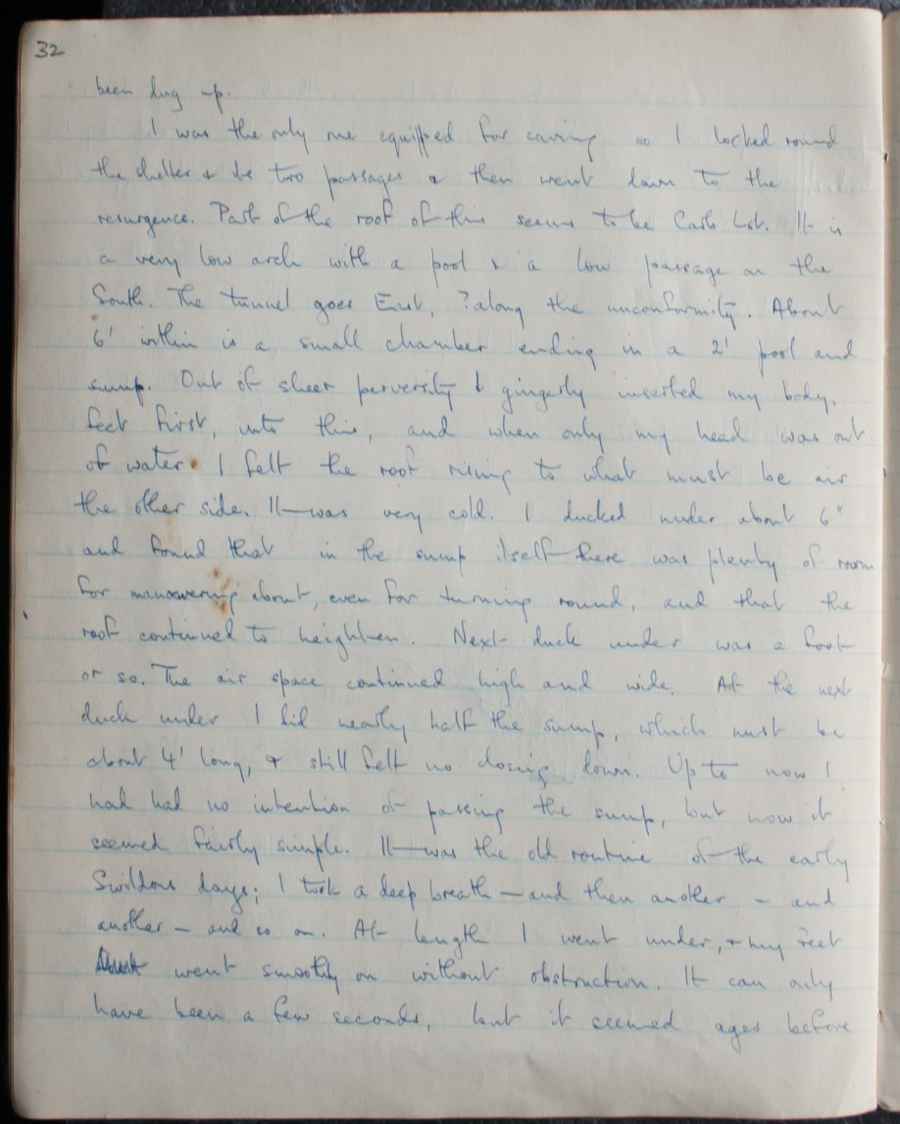 32
been dug up.
I was the only one equipped for caving so I looked round
the shelter & the two passages & then went down to the
resurgence. Part of the roof of this seems to be Carb Lst. It is
a very low arch with a pool & a low passage on the
South. The tunnel goes East, ? along the unconformity. About
6' within is a small chamber ending in a 2' pool and
sump. Out of sheer perversity I gingerly inserted my body,
feet first, into this, and when only my head was out
of water I felt the roof rising to what must be air
the other side. It was very cold. I ducked under about 6"
and found that in the sump itself there was plenty of room
for manoevering about, even for turning round, and that the
roof continued to heighten. Next duck under was a foot
or so. The air space continued high and wide. At the next
duck under I did nearly half the sump, which must be
about 4' long, & still felt no closing down. Up to now I
had had no intention of passing the sump, but now it
seemed fairly simple. It was the old routine of the early
Swildons days; I took a deep breath – and then another – and
another – and so on. At length I went under, & my feet
went smoothly on without obstruction. It can only
have been a few seconds, but it seemed ages before